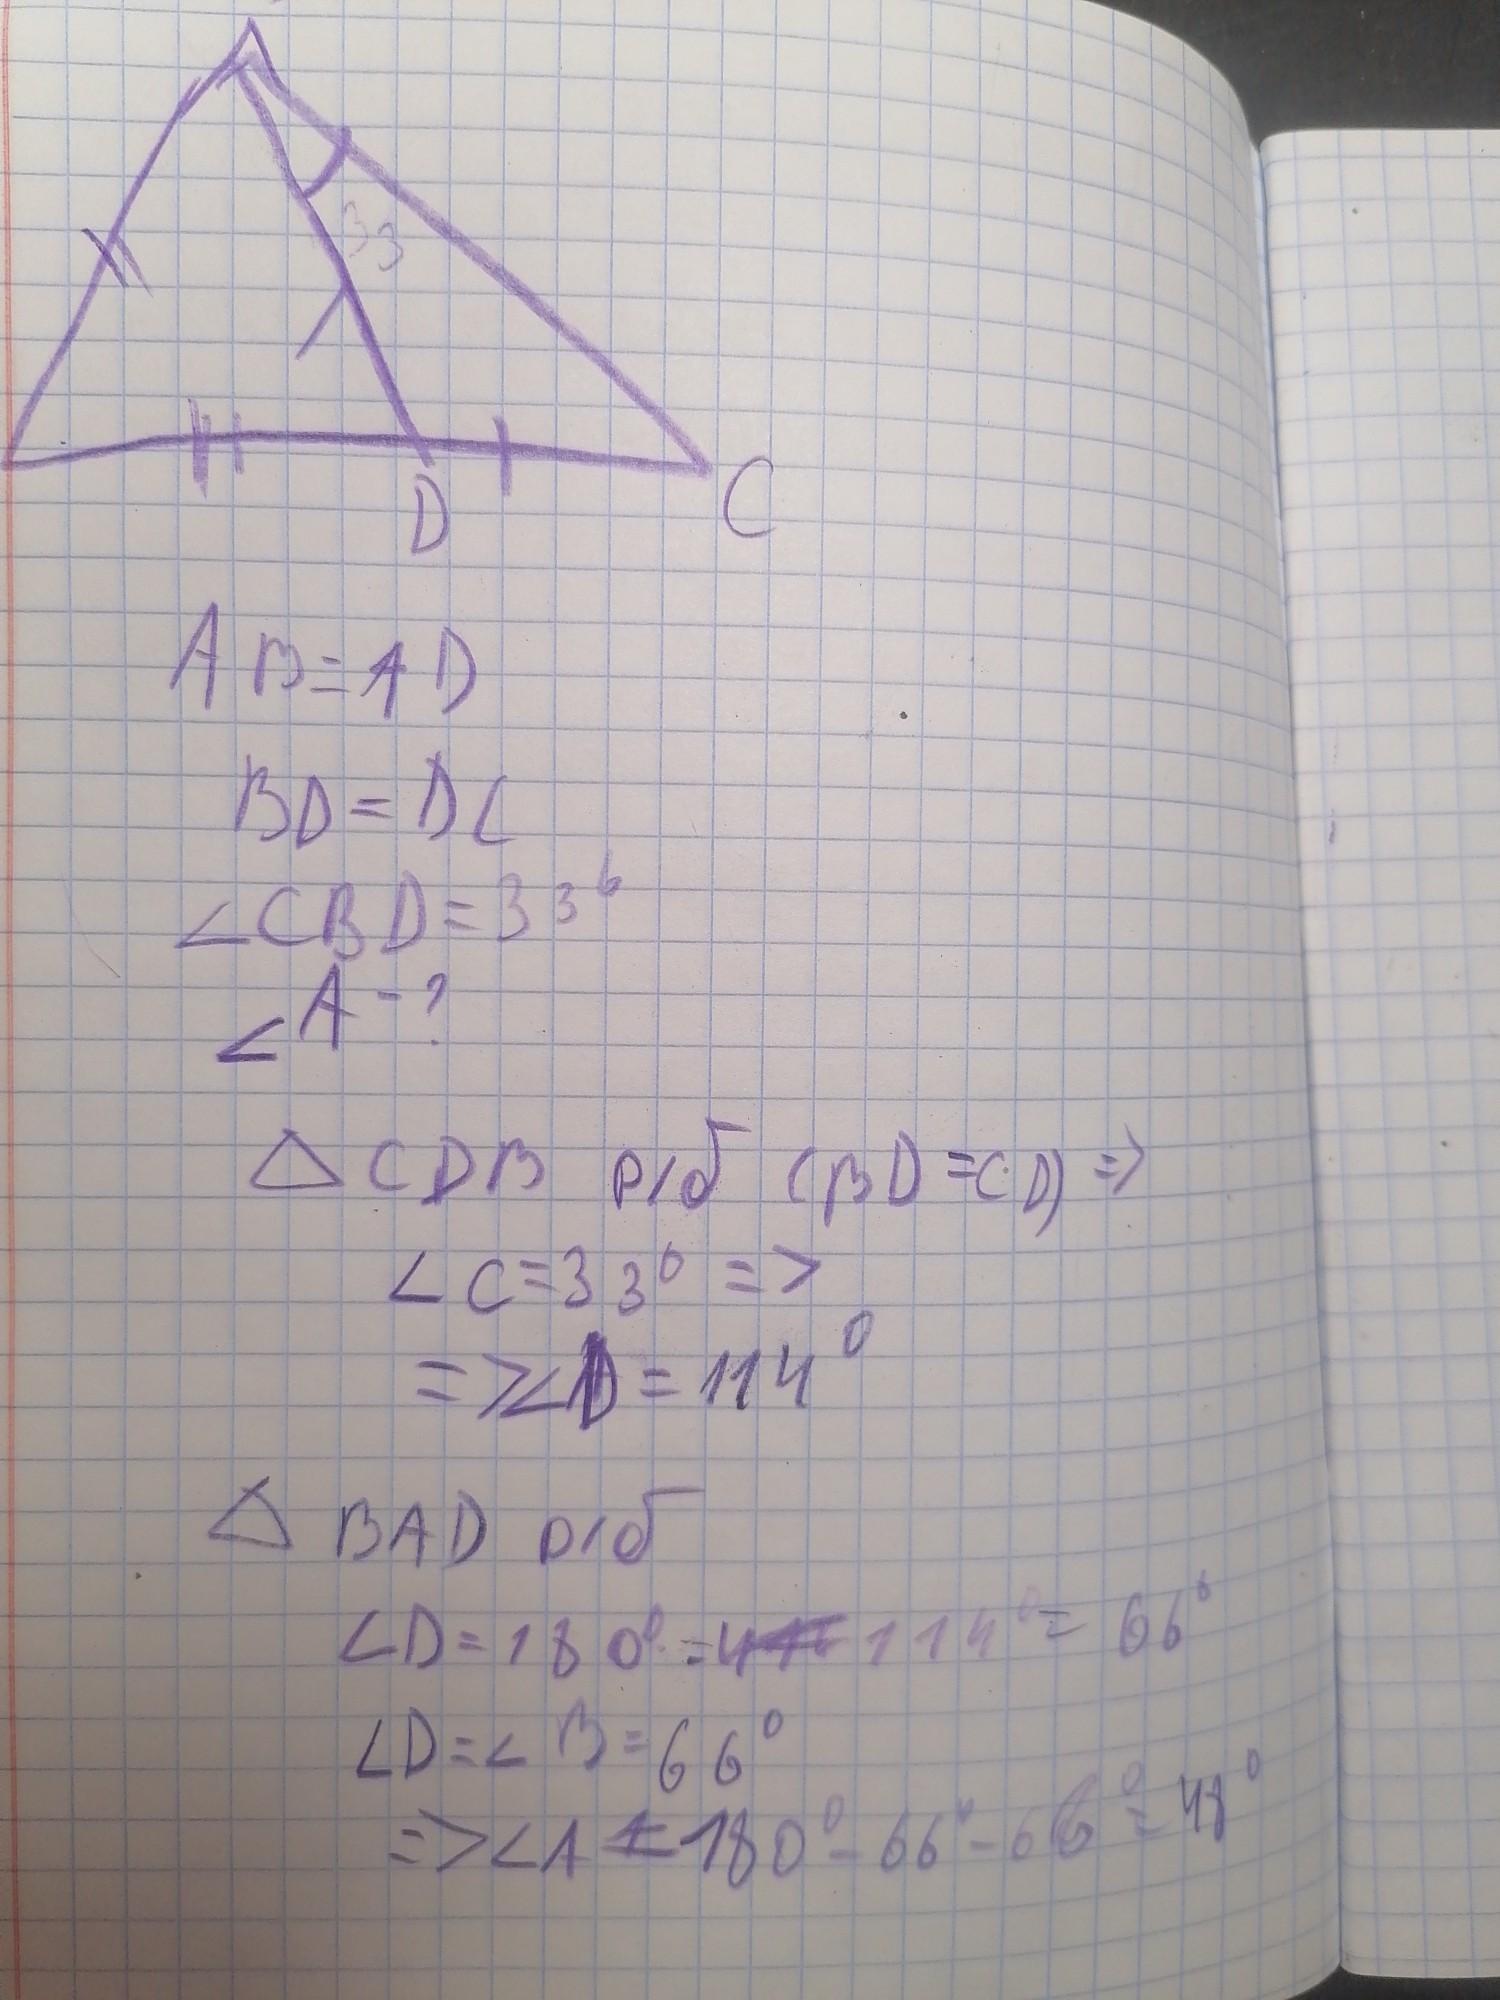 33
D
C
AB=AD
BD=DC
∠CBD=33°
∠A-?
△CDB р/б (BD=CD) =>
∠C=33° =>
=>∠D=114°
△BAD р/б
∠D=180°-114°=66°
∠D=∠B=66°
=>∠A=180°-66°-66°=48°